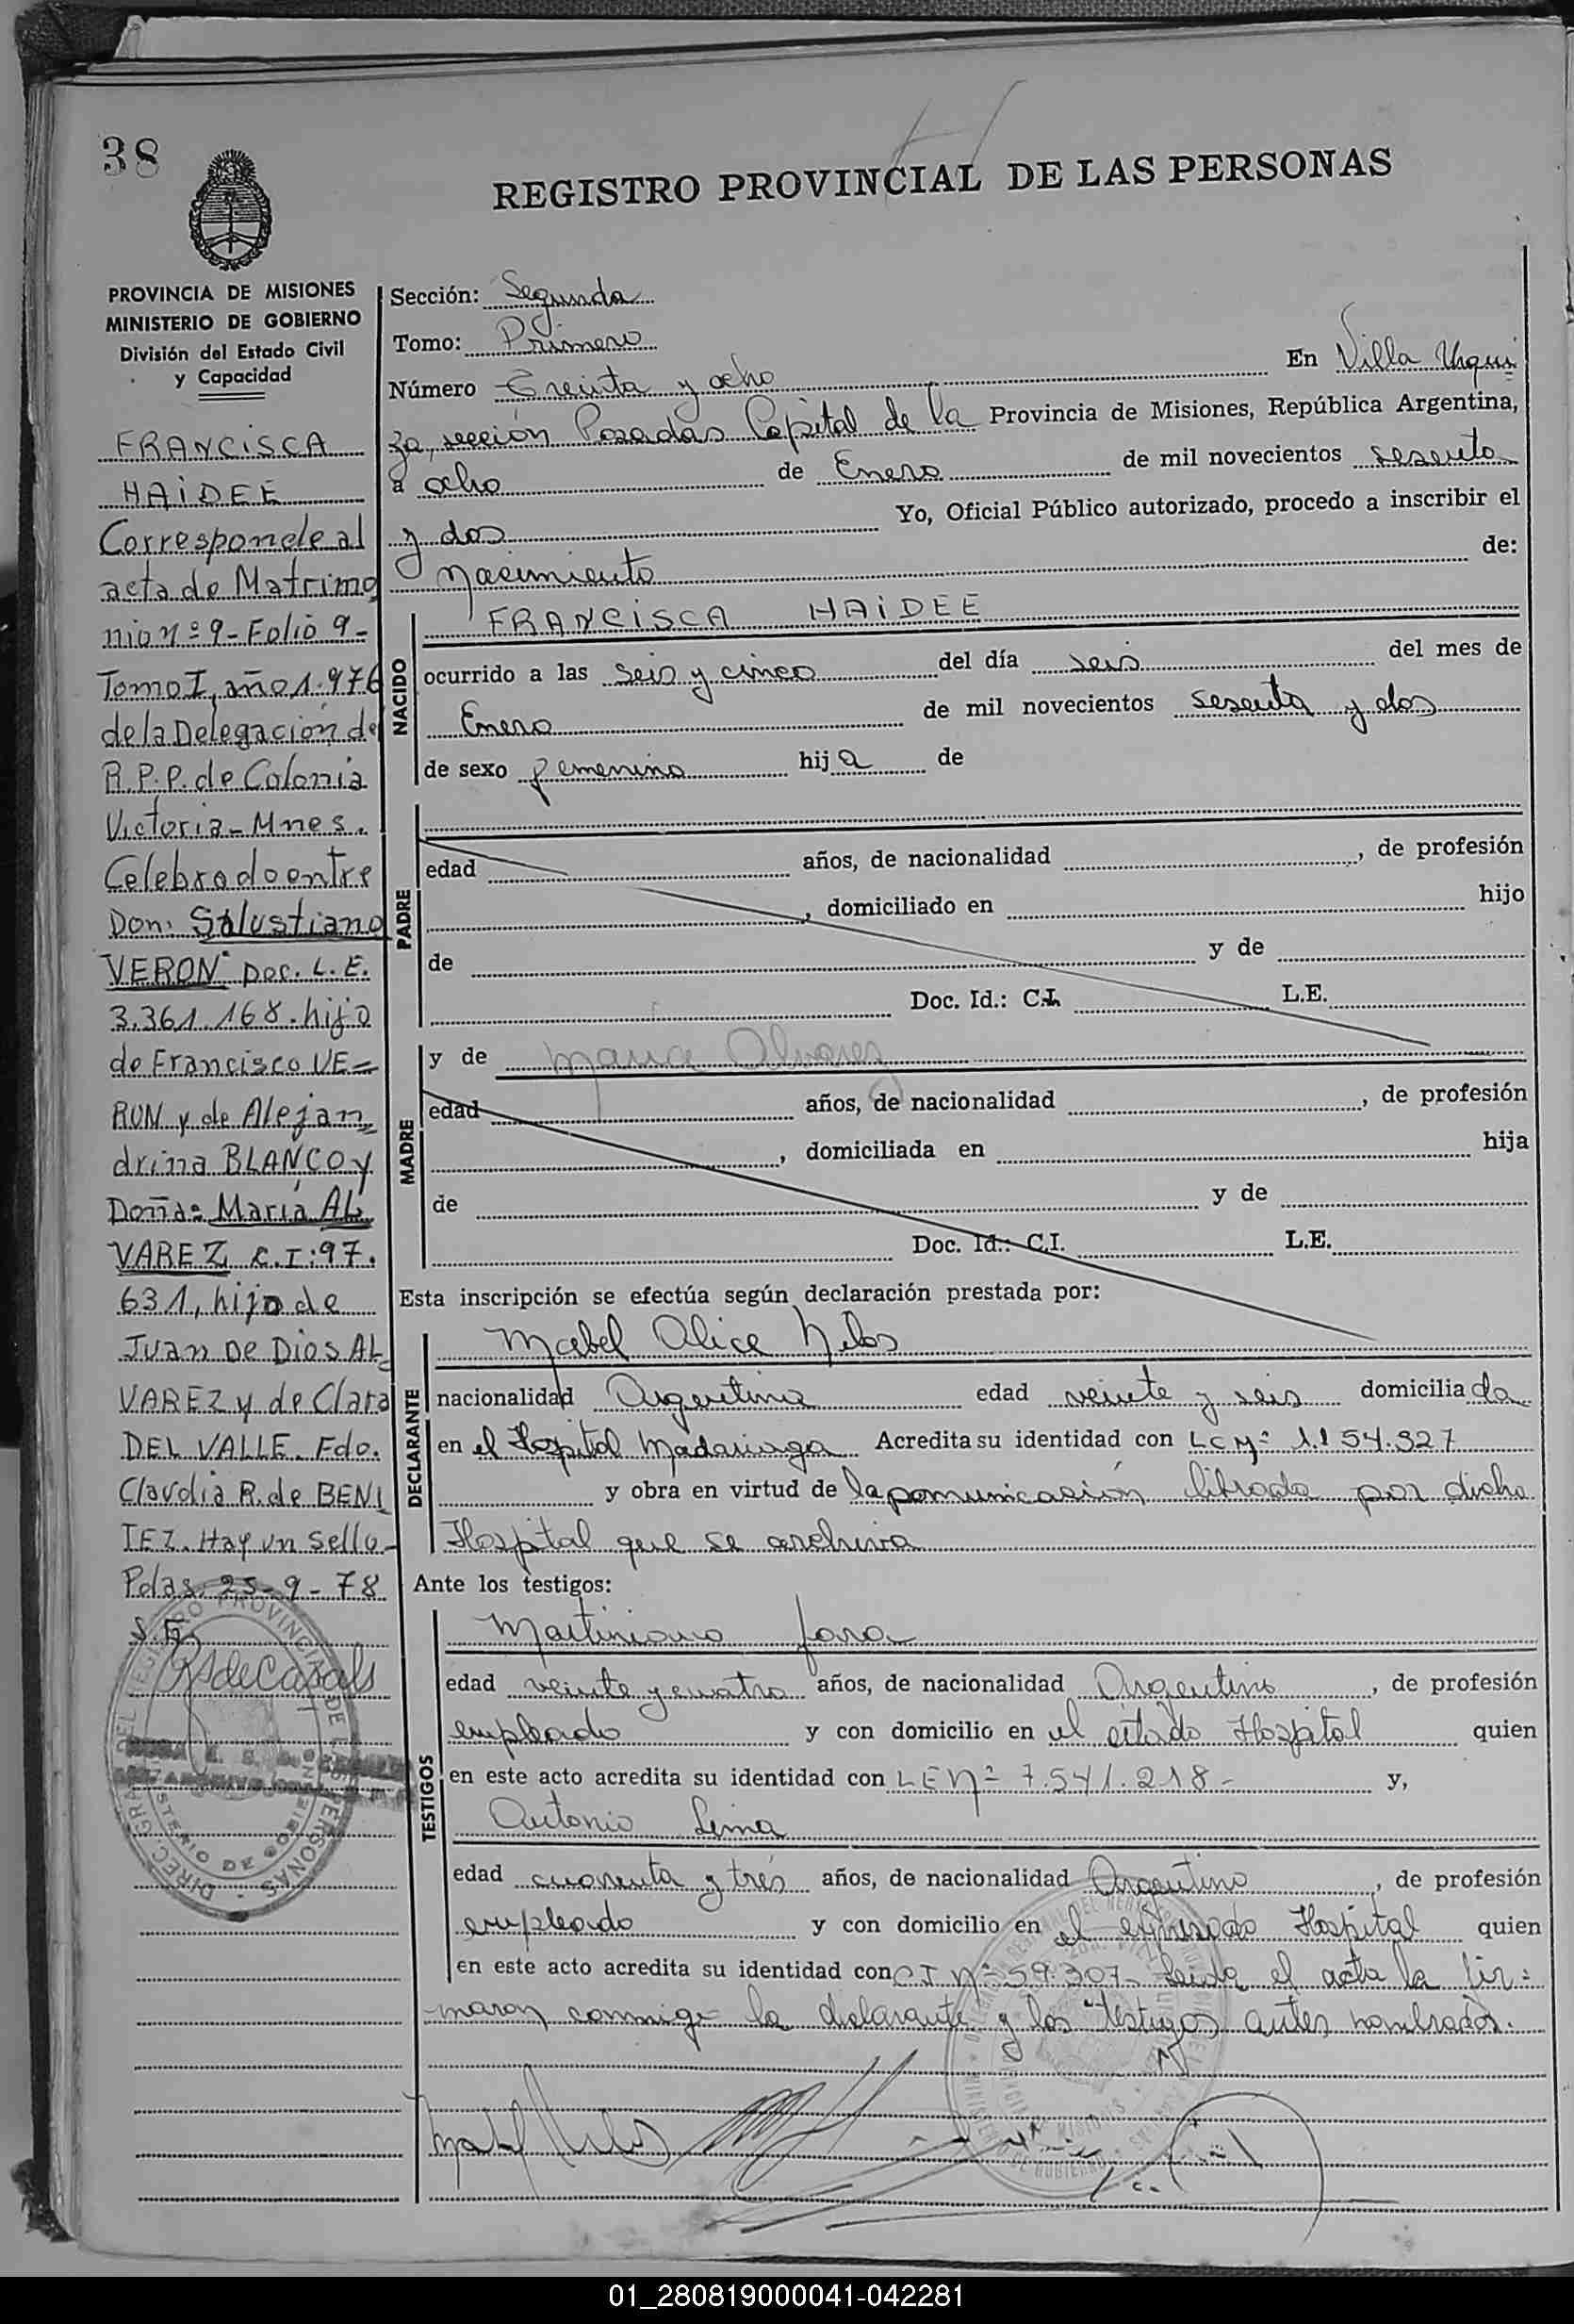 38
REGISTRO PROVINCIAL DE LAS PERSONAS
PROVINCIA DE MISIONES
MINISTERIO DE GOBIERNO
División del Estado Civil
y Capacidad
FRANCISCA
HAIDEE
Corresponde al
acta de Matrimo
nio nº 9 - Folio 9 -
Tomo I, año 1.976
de la Delegación de
R.P.P. de Colonia
Victoria - Mnes.
Celebrado entre
Don: Salustiano
VERON Doc. L.E.
3.361.168. hijo
de Francisco VE=
RON y de Alejan
drina BLANCO y
Doña: María AL
VAREZ C.I: 97.
631, hija de
Juan De Dios AL
VAREZ y de Clara
DEL VALLE. Fdo.
Claudia R. de BENI
TEZ. Hay un sello -
Pdas. 25-9-78
Sección: Segunda
Tomo: Primero
Número Treinta y ocho En Villa Urqui
za, sección Posadas Capital de la Provincia de Misiones, República Argentina,
a ocho de Enero de mil novecientos sesenta
y dos Yo, Oficial Público autorizado, procedo a inscribir el
Nacimiento de:
NACIDO
FRANCISCA HAIDEE
ocurrido a las seis y cinco del día seis del mes de
Enero de mil novecientos sesenta y dos
de sexo femenino hija de
PADRE
edad años, de nacionalidad , de profesión
, domiciliado en hijo
de y de
Doc. Id.: C.I. L.E.
MADRE
y de Maria Alvarez
edad años, de nacionalidad , de profesión
, domiciliada en hija
de y de
Doc. Id.: C.I. L.E.
Esta inscripción se efectúa según declaración prestada por:
DECLARANTE
Mabel Alice
nacionalidad Argentina edad veinte y seis domiciliada
en el Hospital Madariaga Acredita su identidad con LC Nº 1.154.327
y obra en virtud de la comunicación librada por dicho
Hospital que se archiva
Ante los testigos:
TESTIGOS
Martiniano Jara
edad veinte y cuatro años, de nacionalidad Argentino , de profesión
empleado y con domicilio en el citado Hospital quien
en este acto acredita su identidad con LE Nº 7.541.218 - y,
Antonio Lima
edad cuarenta y tres años, de nacionalidad Argentino , de profesión
empleado y con domicilio en el expresado Hospital quien
en este acto acredita su identidad con CI Nº 59.307- Leida el acta la fir=
maron conmigo la declarante y los testigos antes nombrados.
01_280819000041-042281